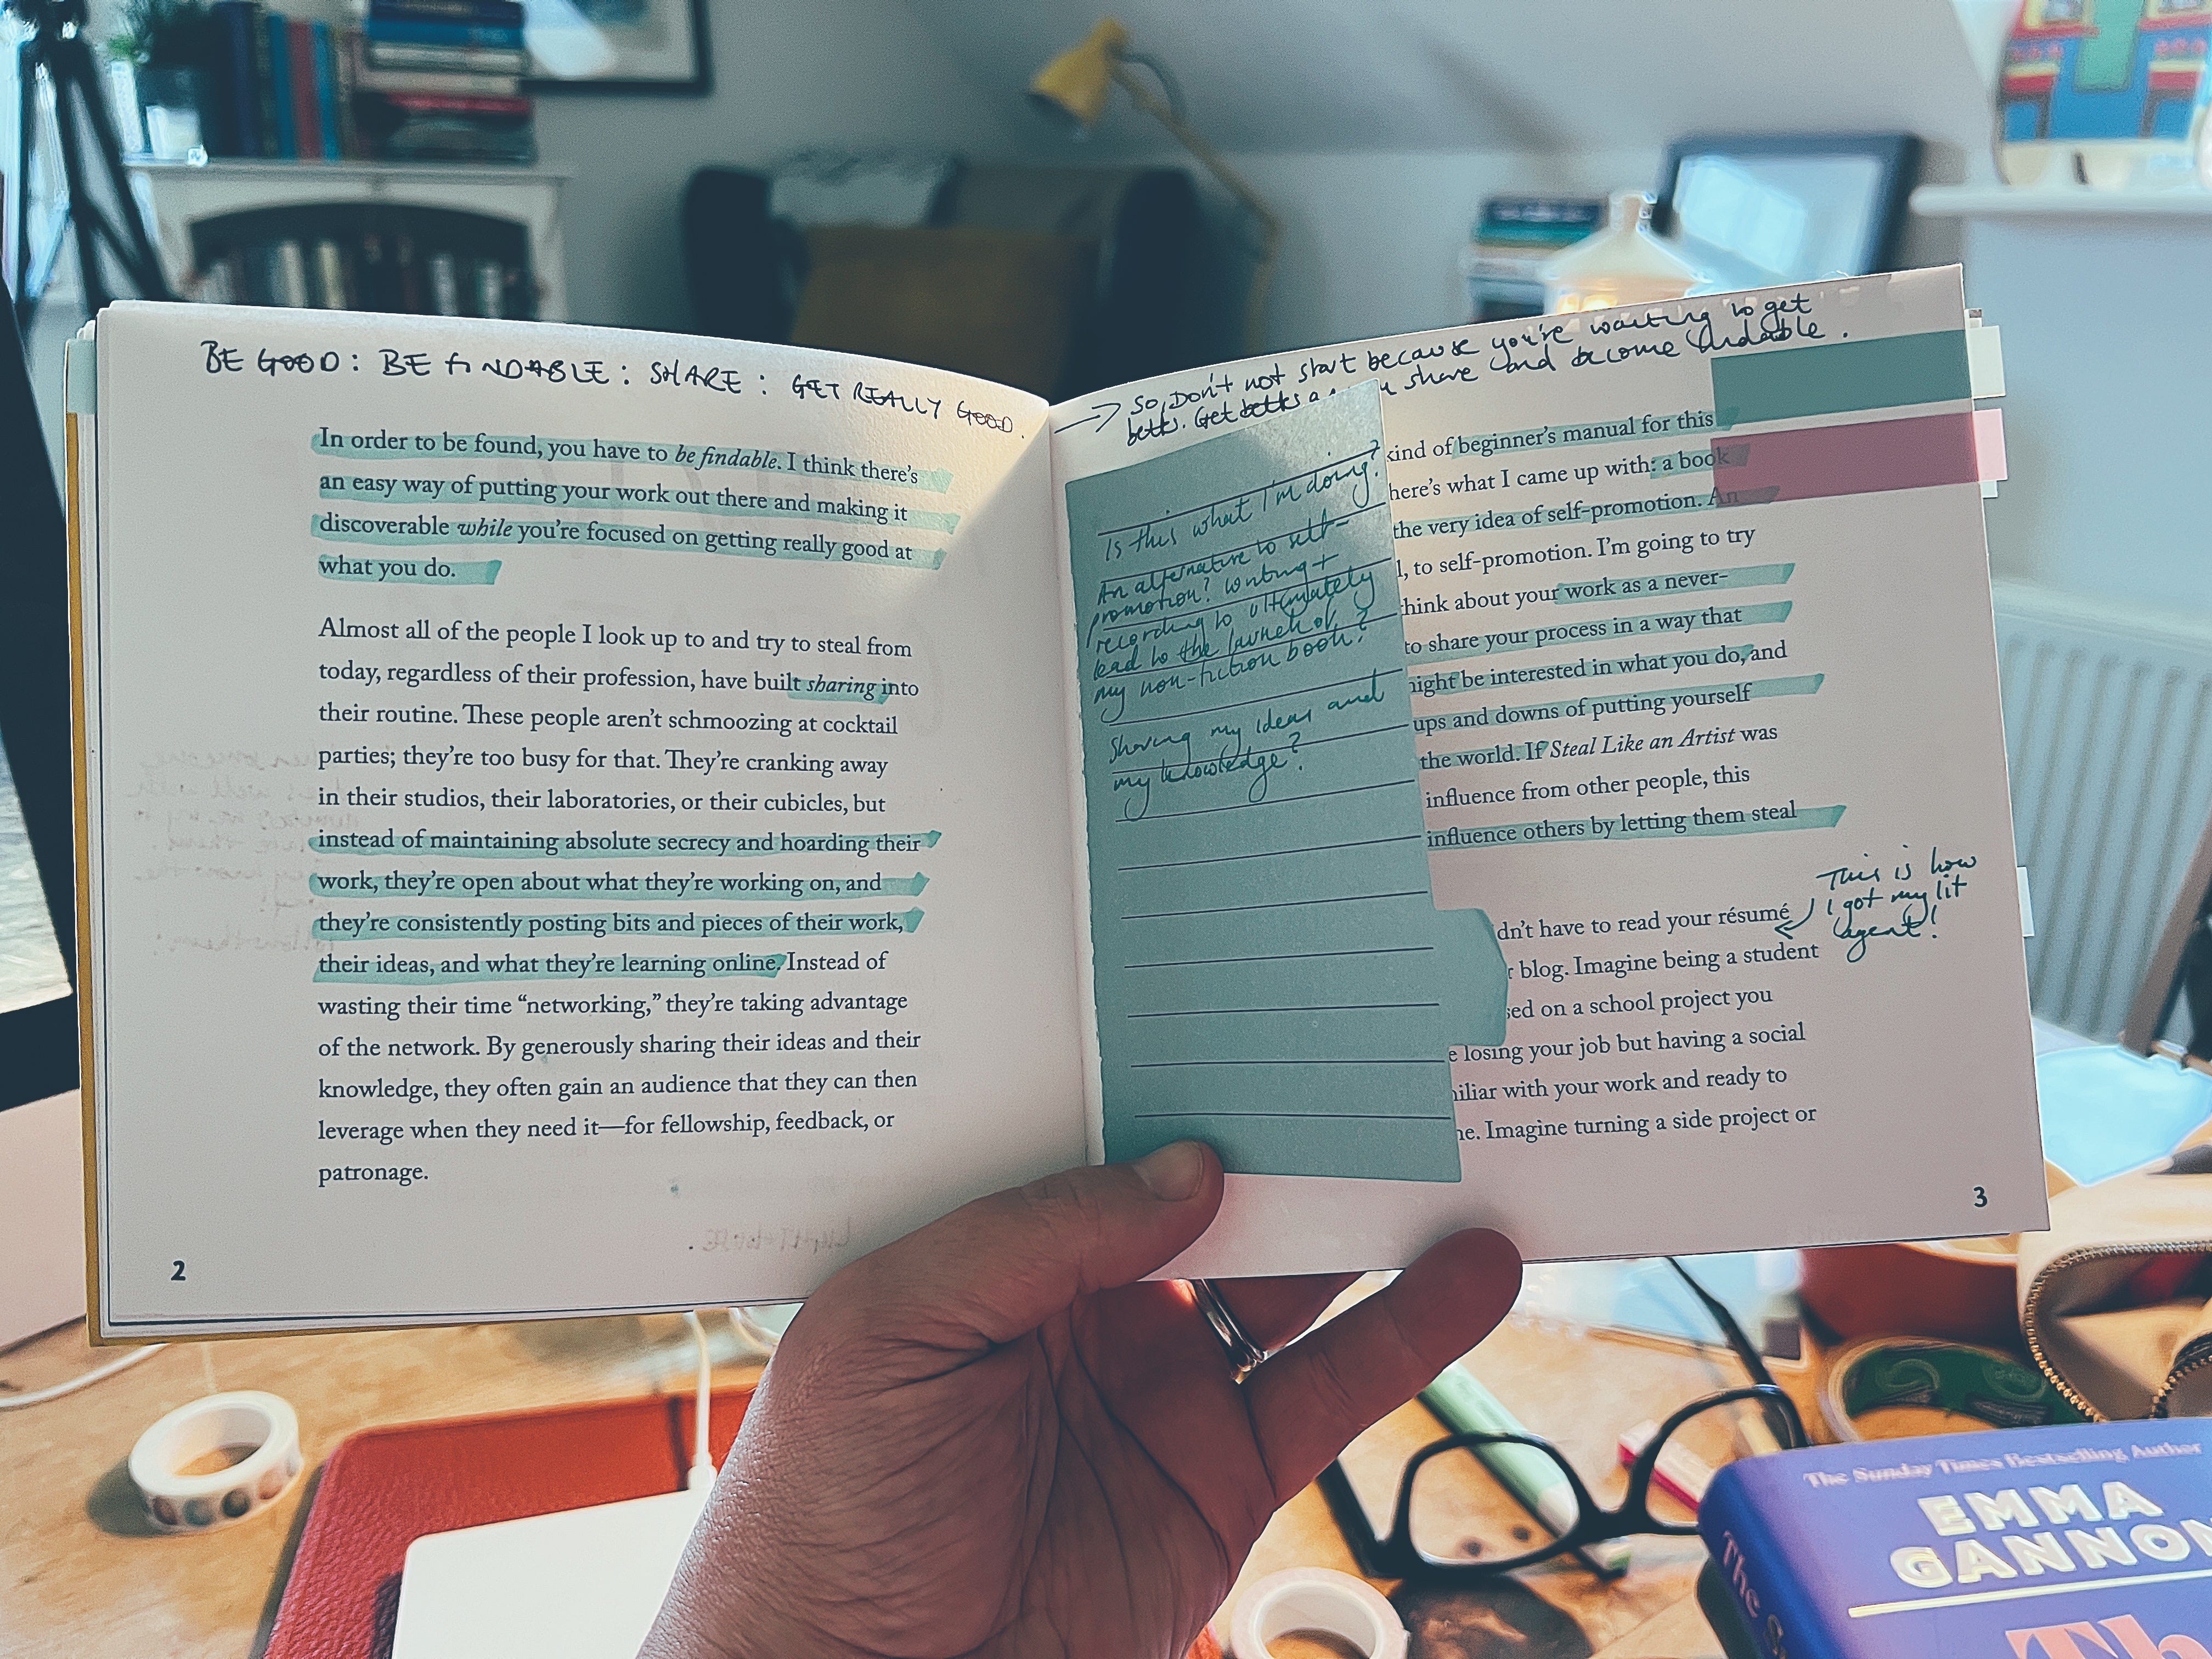 BE GOOD: BE FINDABLE: SHARE: GET REALLY GOOD.
In order to be found, you have to be findable. I think there's
an easy way of putting your work out there and making it
discoverable while you're focused on getting really good at
what you do.
Almost all of the people I look up to and try to steal from
today, regardless of their profession, have built sharing into
their routine. These people aren't schmoozing at cocktail
parties; they're too busy for that. They're cranking away
in their studios, their laboratories, or their cubicles, but
instead of maintaining absolute secrecy and hoarding their
work, they're open about what they're working on, and
they're consistently posting bits and pieces of their work,
their ideas, and what they're learning online. Instead of
wasting their time “networking,” they're taking advantage
of the network. By generously sharing their ideas and their
knowledge, they often gain an audience that they can then
leverage when they need it—for fellowship, feedback, or
patronage.
2
→ So, Don't not start because you're waiting to get
better. Get better as you share and become findable.
Is this what I'm doing?
An alternative to self-
promotion? Writing +
recording to ultimately
lead to the launch of
my non-fiction book?
Sharing my ideas and
my knowledge?
kind of beginner's manual for this
here's what I came up with: a book
the very idea of self-promotion. An
to self-promotion. I'm going to try
think about your work as a never-
to share your process in a way that
might be interested in what you do, and
ups and downs of putting yourself
the world. If Steal Like an Artist was
influence from other people, this
influence others by letting them steal
dn't have to read your résumé
blog. Imagine being a student
sed on a school project you
e losing your job but having a social
miliar with your work and ready to
ne. Imagine turning a side project or
This is how
I got my lit
agent!
3
The Sunday Times Bestselling Author
EMMA
GANNON
Th
The